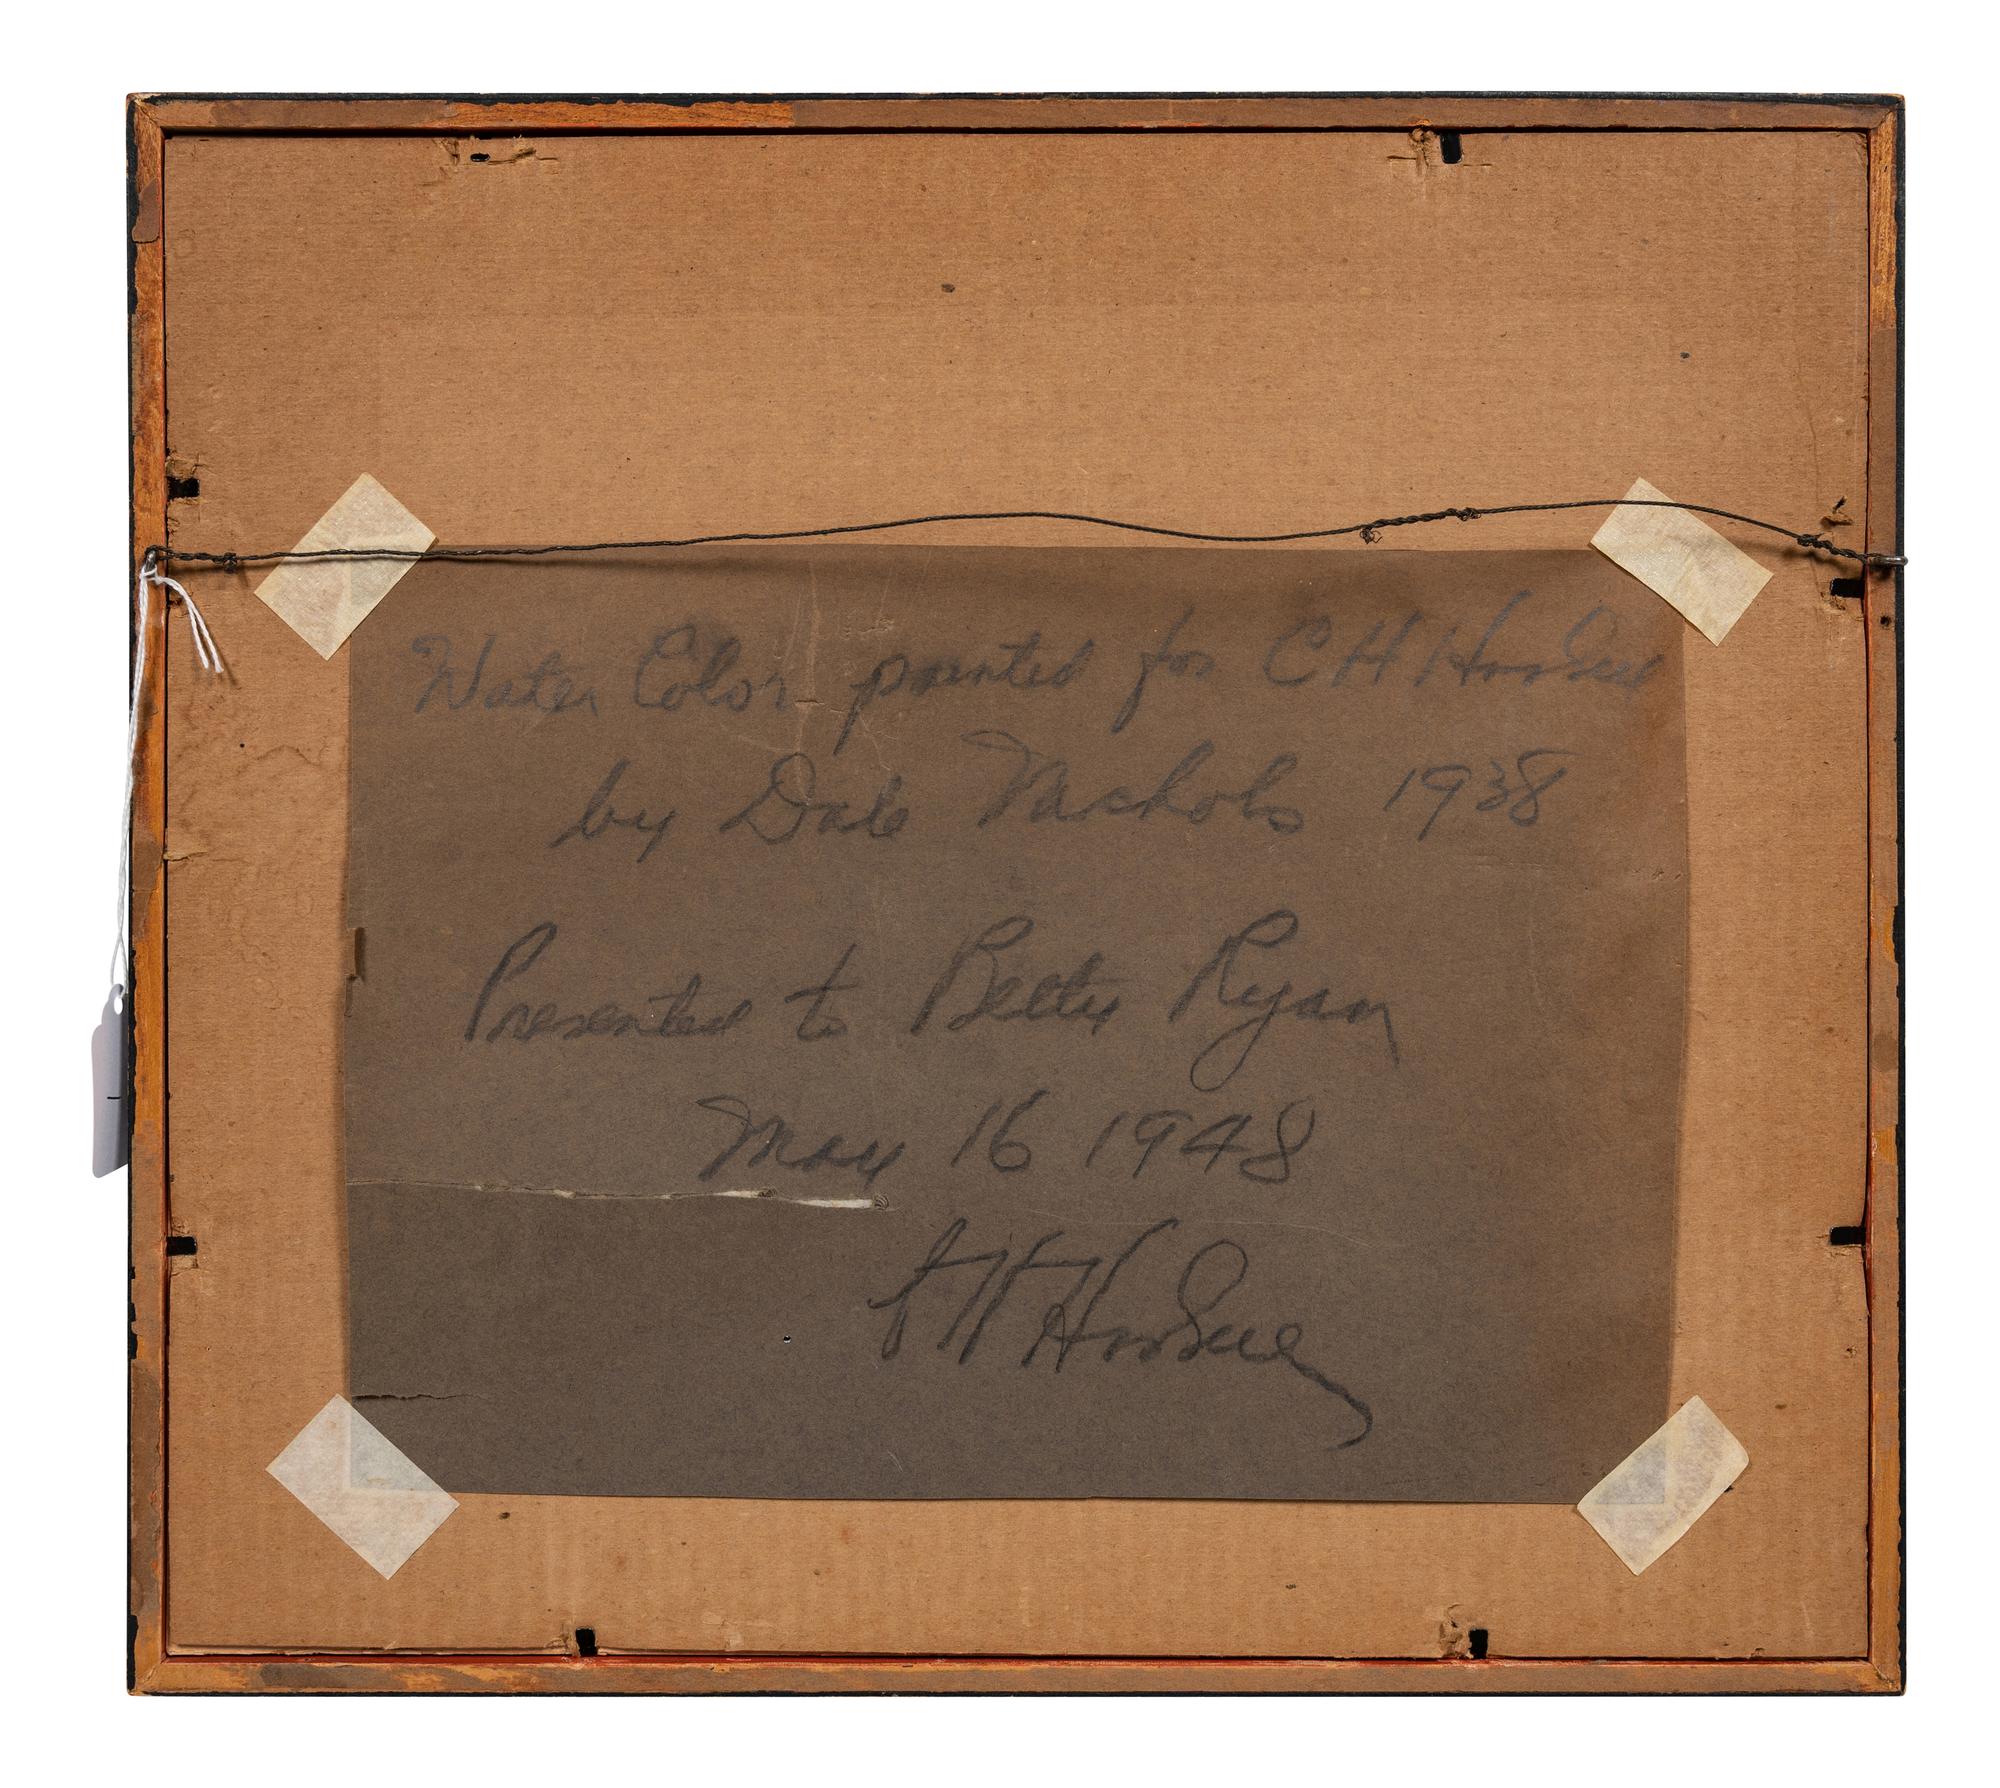 Water Color painted for C H
by Dale Nichols 1938
Presented to Betty Ryan
May 16 1948